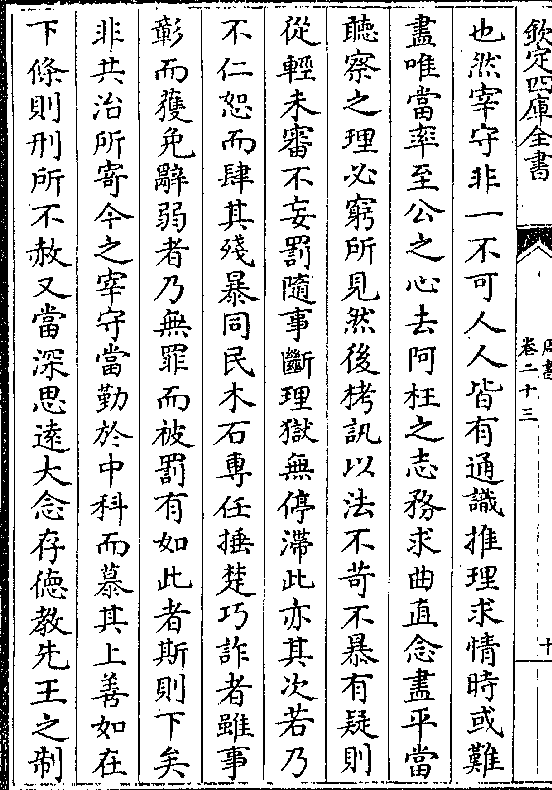 欽定四庫全書
卷二十三
也然宰守非一不可人人皆有通識推理求情時或難
盡唯當率至公之心去阿枉之志務求曲直念盡平當
聽察之理必窮所見然後栲訊以法不苛不暴有疑則
從輕未審不妄罰隨事斷理獄無停滯此亦其次若乃
不仁恕而肆其殘暴同民木石專任捶楚巧詐者雖事
彰而獲免辭弱者乃無罪而被罰有如此者斯則下矣
非共治所寄今之宰守當勤於中科而慕其上善如在
下條則刑所不赦又當深思逺大念存徳教先王之制